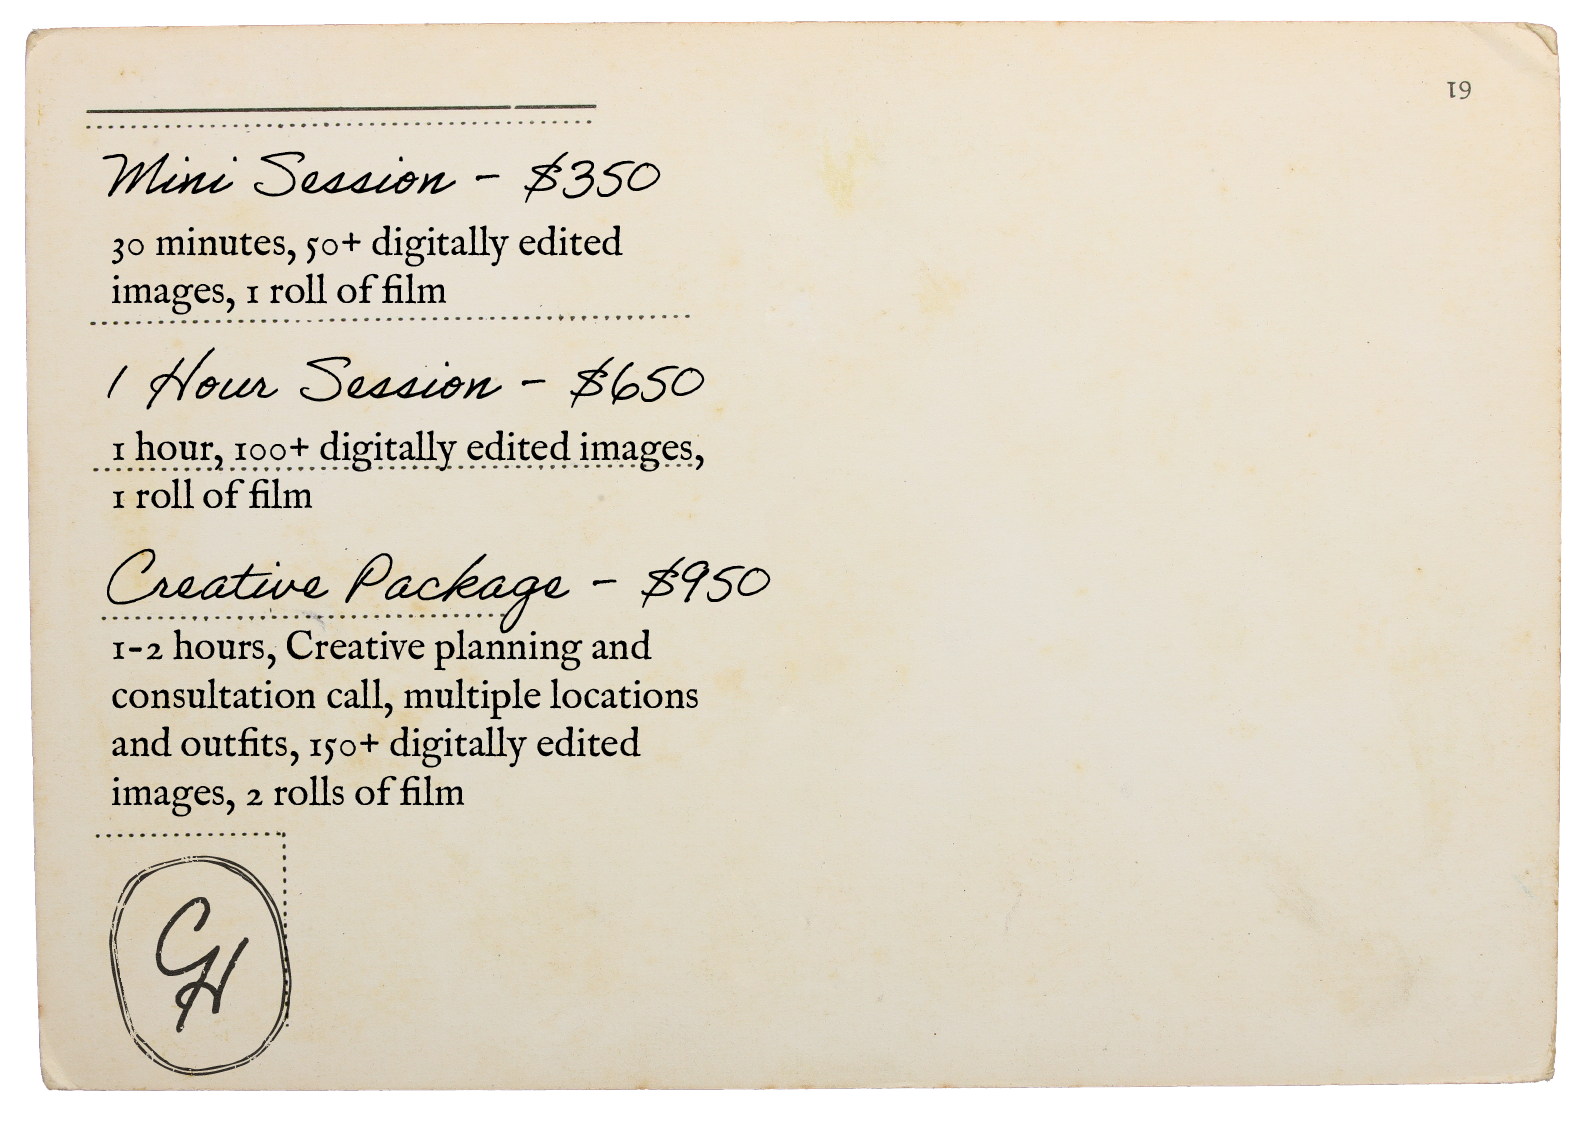 19
Mini Session - $350
30 minutes, 50+ digitally edited
images, 1 roll of film
1 Hour Session - $650
1 hour, 100+ digitally edited images,
1 roll of film
Creative Package - $950
1-2 hours, Creative planning and
consultation call, multiple locations
and outfits, 150+ digitally edited
images, 2 rolls of film
GH